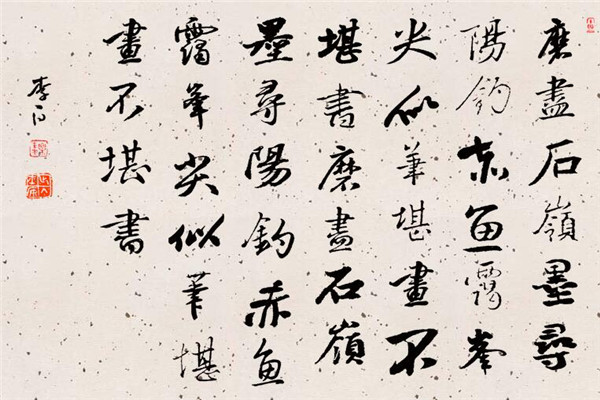 磨盡石嶺墨尋
陽釣赤魚靄峯
尖似筆堪畫不
堪書磨盡石嶺
墨尋陽釣赤魚
靄峯尖似筆堪
畫不堪書
李